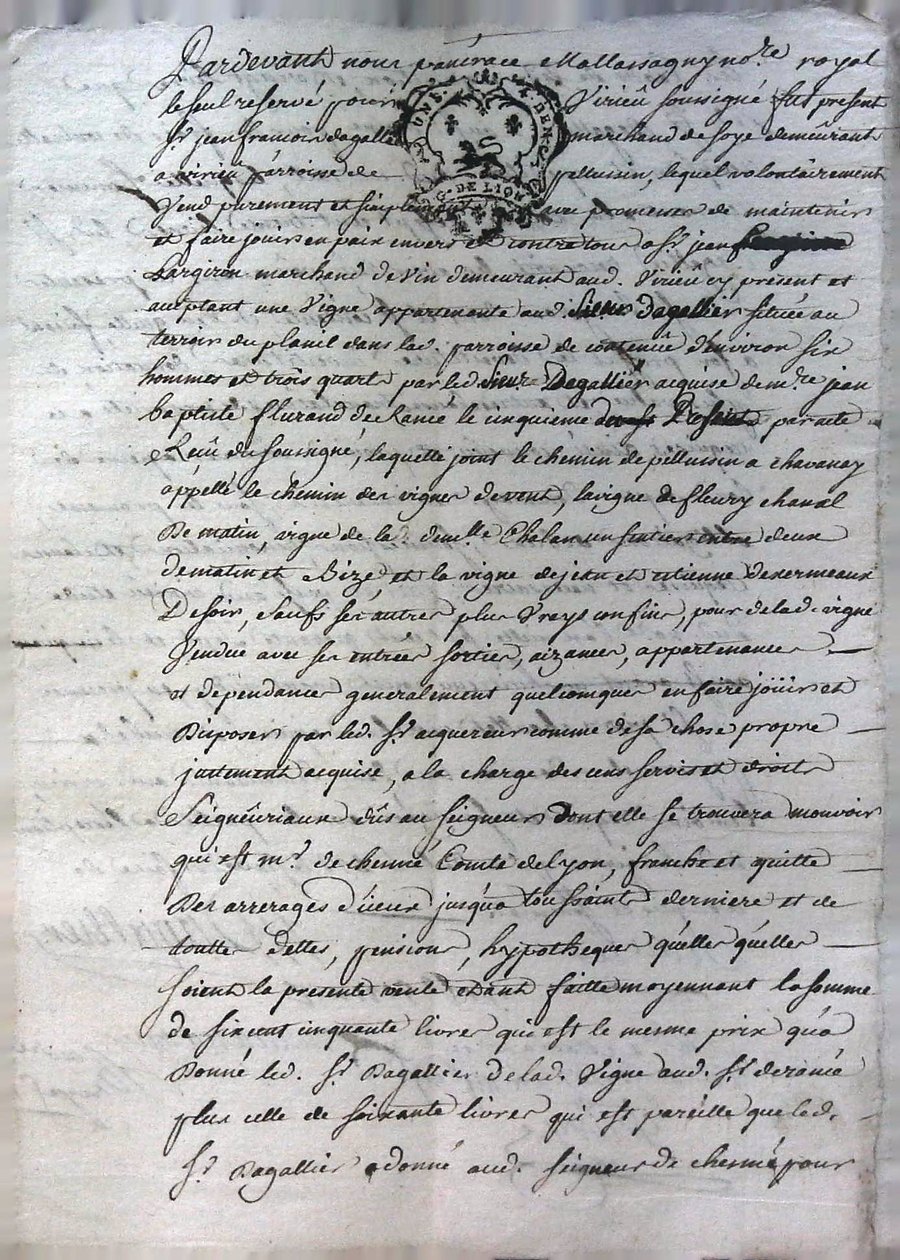 Pardevant nous pancrace Mallassagny no.re royal
le seul reservé pour Virieû soussigné fut present
Sr. jean francois dagallier marchand de soye demeûrant
a virieû parroisse de pellussin, lequel volontairement
Vend purement et simplement avec promesse de maintenir
et faire jouir en paix envers et contre tous a Sr. jean
Largiron marchand de vin demeurant aud. Virieû cy présent et
acceptant une Vigne appartenante aud. Sieur Dagallier située au
terroir du planil dans lad. parroisse de contenüe d'environ six
hommes et trois quart par led. Sieur Dagallier acquise de m.re jean
baptiste flurand de Ramé le cinquième par acte
Recû du soussigné, laquelle joint le chemin de pellussin a chavanay
appellé le chemin des vignes de vent, la vigne de fleury chaval
De matin, vigne de lad. dem.lle Chalan un sentier entre deux
de matin et Bize, et la vigne de jean et etienne Devermeaux
De soir, Saufs ses autres plus Vrays confins, pour de lad. vigne
Vendûe avec ses entrées sorties, aizances, appartenances
et dépendances generalement quelcomques en faire joüir et
Disposer par led. Sr. acquereur comme de sa chose propre
justement acquise, a la charge des cens servis et droits
Seigneûriaux dûs au seigneur dont elle se trouvera mouvoir
qui est m.r de chenné Comte de Lyon, franche et quitte
Des arrerages d'iceux jusqu'a toussaints derniere et de
touttes dettes, pensions, hypotheques qu'elles qu'elles
soient la presente vente etant faitte moyennant la somme
de six cent cinquante livres qui est le mesme prix qu'a
Donné led. Sr. Dagallier de lad. Vigne aud. Sr. de ramé
plus celle de soixante livres qui est pareille que led.
Sr. Dagallier a donné aud. seigneur de chenné pour
G. DE LION